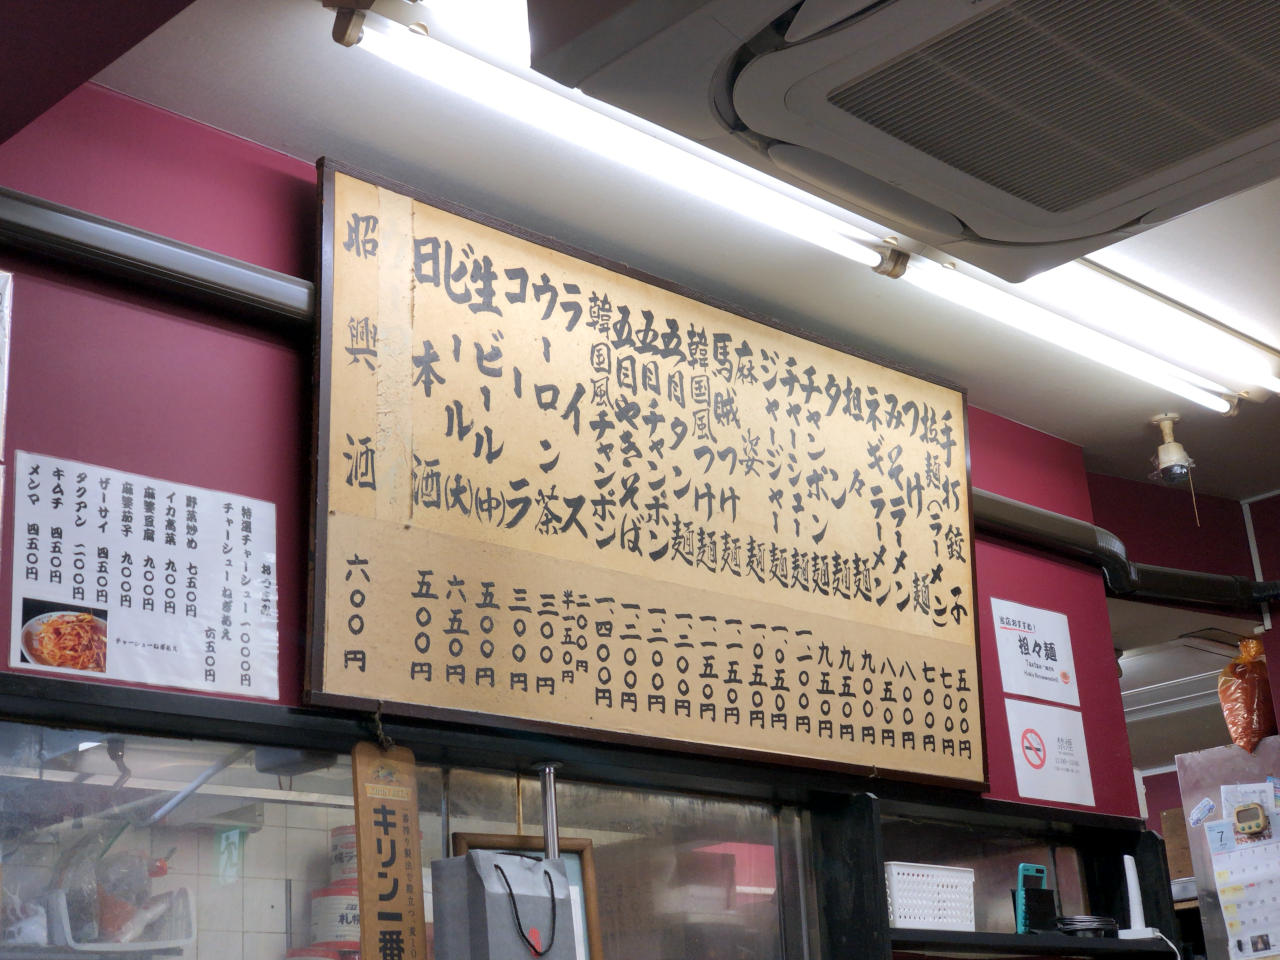 手打餃子 五〇〇円
拉麺(ラーメン) 七〇〇円
つけ麺 七〇〇円
みそラーメン 八〇〇円
ネギラーメン 八五〇円
担々麺 九〇〇円
タン麺 九五〇円
チャンポン麺 九五〇円
チャーシュー麺
ジャージャー麺 一、〇五〇円
麻婆麺 一、〇五〇円
馬賊つけ麺 一、一五〇円
韓国風つけ麺 一、一五〇円
五目タン麺 一、二〇〇円
五目チャンポン 一、二〇〇円
五目やきそば 一、二〇〇円
韓国風チャンポン 一、四〇〇円
ライス 二〇〇円 半一五〇円
ウーロン茶 三〇〇円
コーラ 三〇〇円
生ビール(中) 五〇〇円
ビール(大) 六五〇円
日本酒 五〇〇円
昭興酒 六〇〇円
おつまみ
特選チャーシュー 一〇〇〇円
チャーシューねぎあえ 六五〇円
野菜炒め 七五〇円
イカ高菜 九〇〇円
麻婆豆腐 九〇〇円
麻婆茄子 九〇〇円
ザーサイ 四五〇円
タクアン 二〇〇円
キムチ 四五〇円
メンマ 四五〇円
チャーシューねぎあえ
当店おすすめ!
担々麺
禁煙
キリン一番
札幌
7